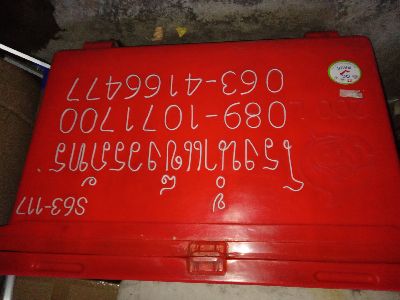 S63-117
โรงน้ำแข็งวรภัทร
089-1071700
063-4166477